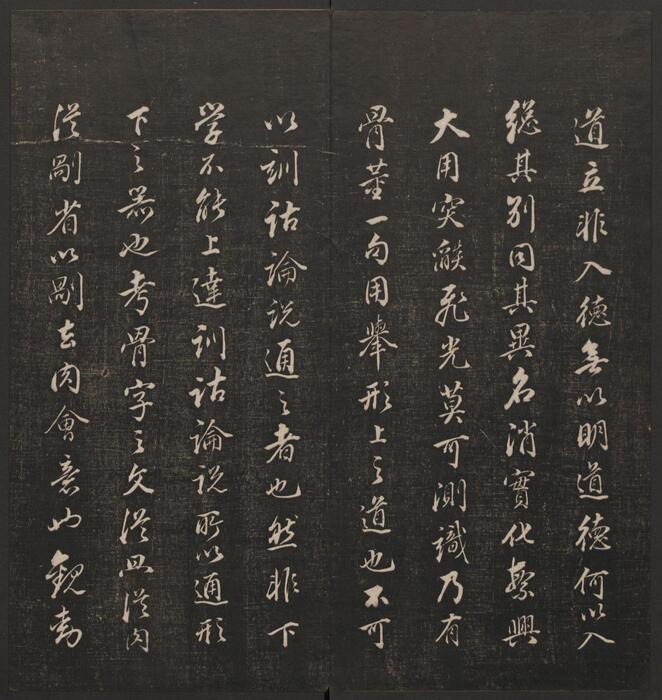 道立非入德無以明道德何以入
總其別同其異名消實化繁興
大用突燄飛光莫可測識乃有
骨董一句用舉形上之道也不可
以訓詁論說通之者也然非下
學不能上達訓詁論說所以通形
下之器也考骨字之文從從肉
從剮省以剮去肉會意也觀